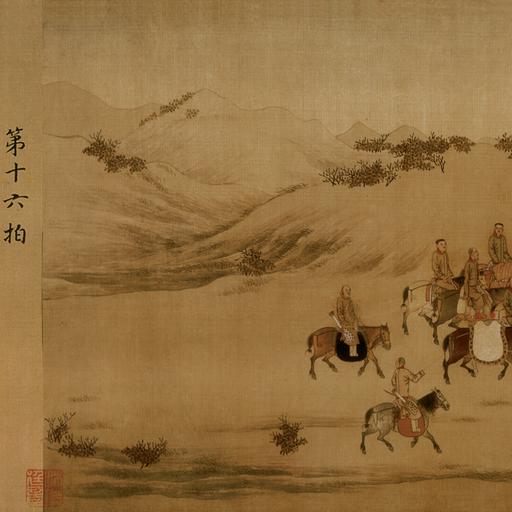 第十六拍